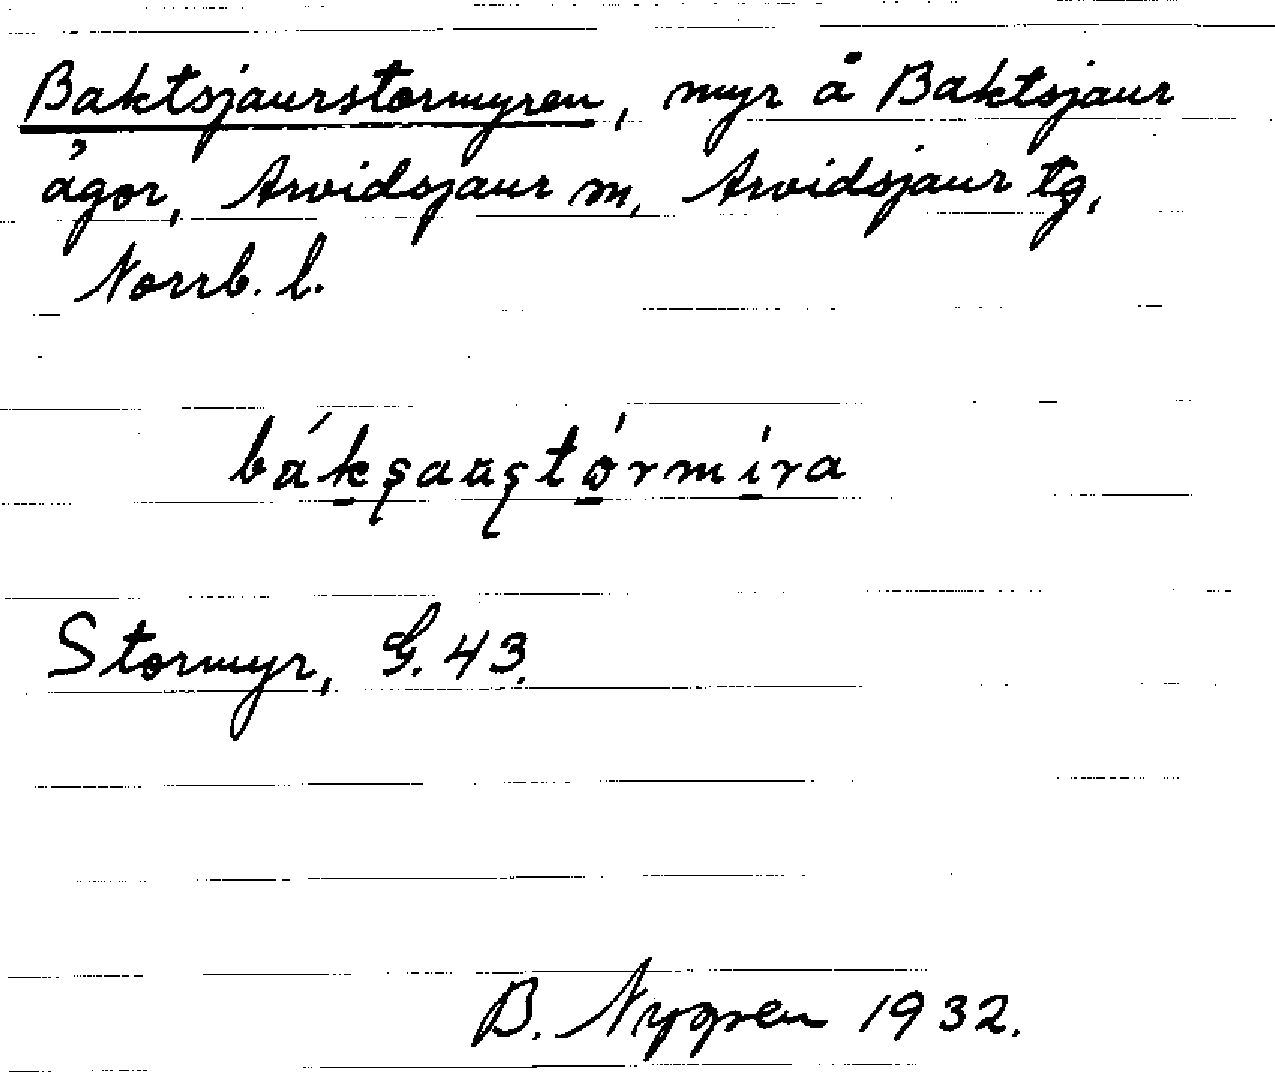 Baktsjaurstormyren, myr å Baktsjaur
ägor, Arvidsjaur sn, Arvidsjaur tg,
Norrb. l.
Stormyr, G. 43.
B. Nygren 1932.